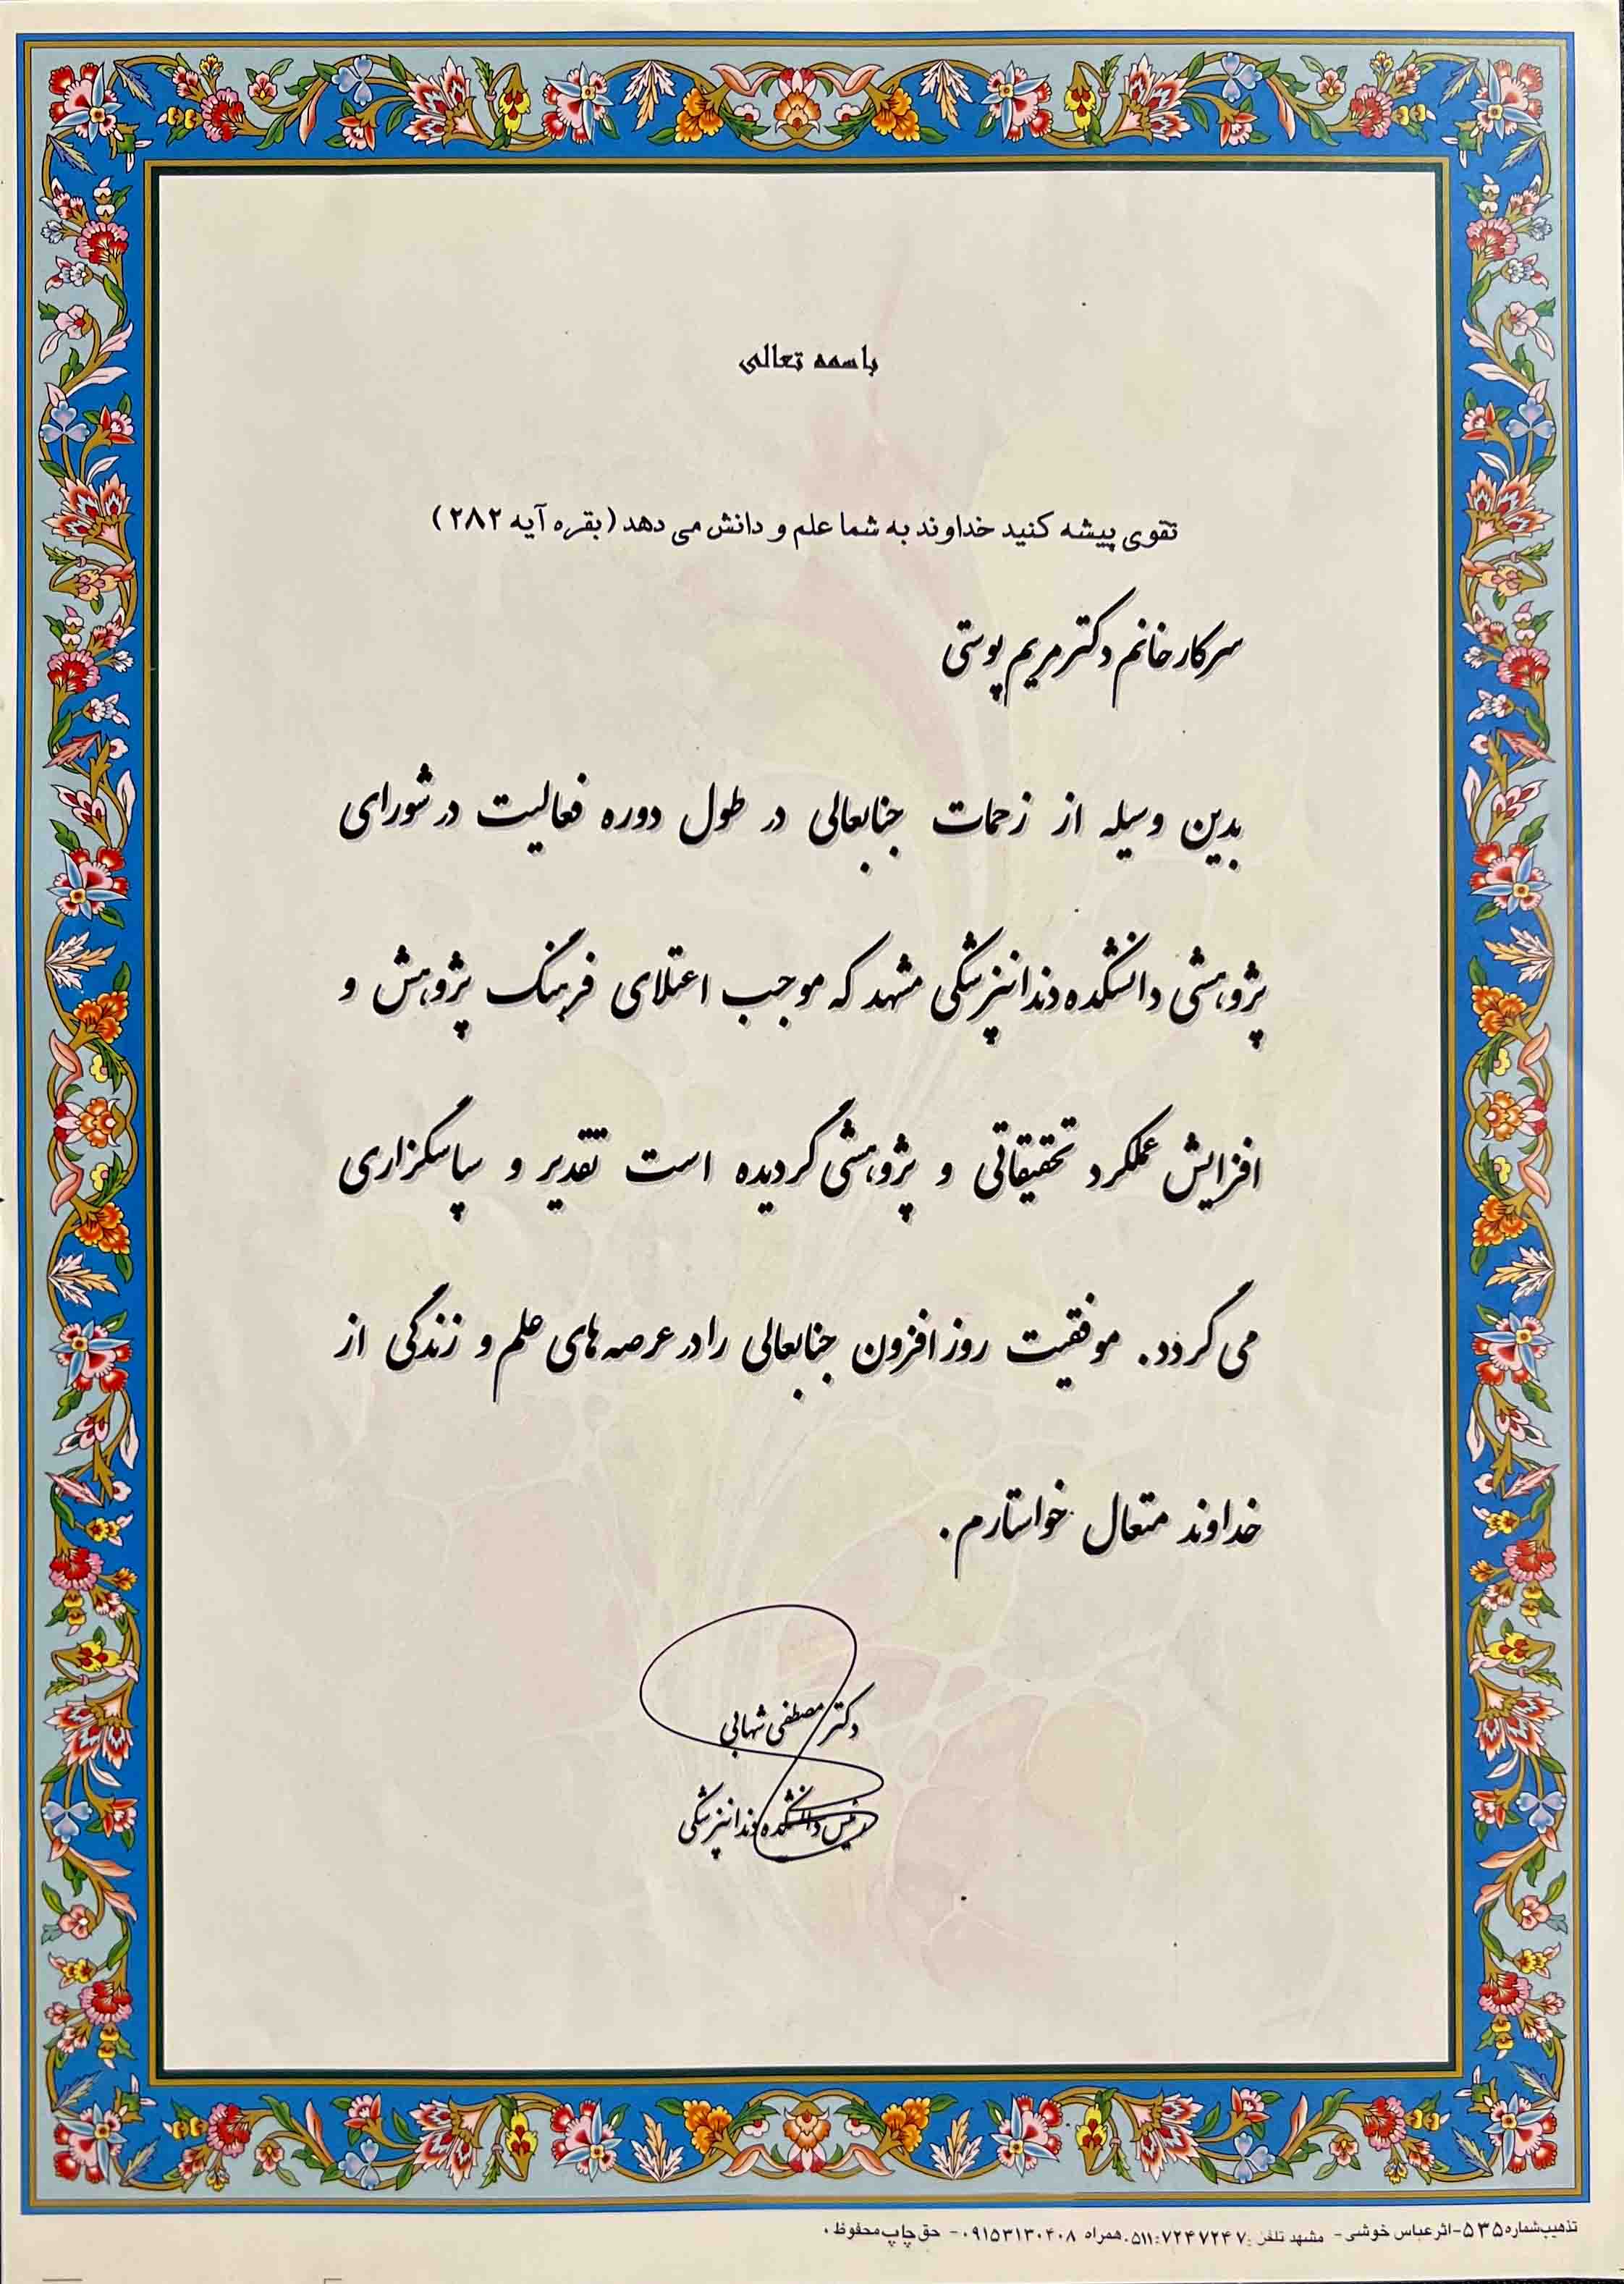 باسمه تعالی
تقوی پیشه کنید خداوند به شما علم و دانش می دهد (بقره آیه ۲۸۲)
سرکار خانم دکتر مریم پوستی
بدین وسیله از زحمات جنابعالی در طول دوره فعالیت در شورای
پژوهشی دانشکده دندانپزشکی مشهد که موجب اعتلای فرهنگ پژوهش و
افزایش عملکرد تحقیقاتی و پژوهشی گردیده است تقدیر و سپاسگزاری
می گردد. موفقیت روز افزون جنابعالی را در عرصه های علم و زندگی از
خداوند متعال خواستارم.
دکتر مصطفی شهابی
رئیس دانشکده دندانپزشکی
تذهیب شماره ۵۳۵- اثر عباس خوشی- مشهد تلفن: ۷۲۴۷۲۴۷-۰۵۱۱ همراه ۰۹۱۵۳۱۳۰۴۰۸- حق چاپ محفوظ.